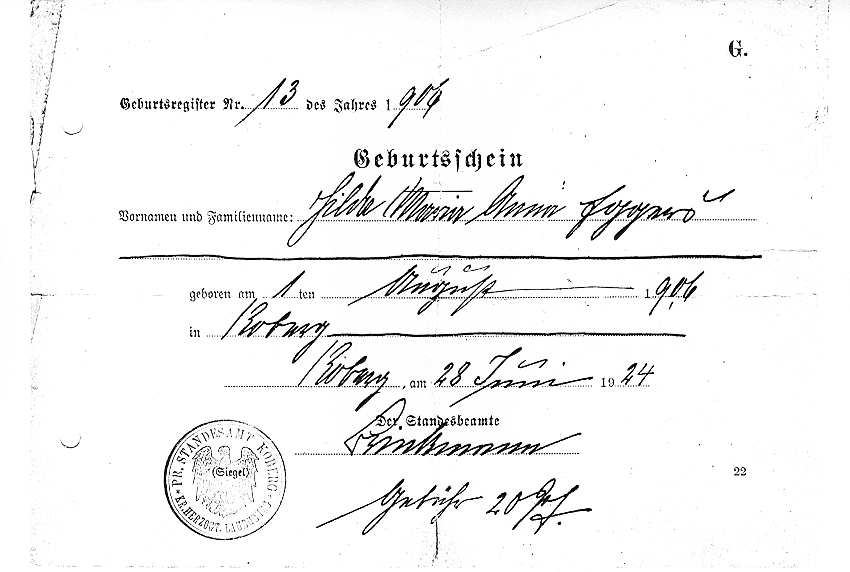 G.
Geburtsregister Nr. 13 des Jahres 1906
Geburtsschein
Vornamen und Familienname: Hilda Maria Anna Eggers
geboren am 1ten August 1906
in Koberg
Koberg, am 28 Juni 1924
Der Standesbeamte
Brinkmann
PR. STANDESAMT KOBERG
KR. HERZOGT. LAUENBURG
(Siegel)
22
Gebühr 20 Pf.